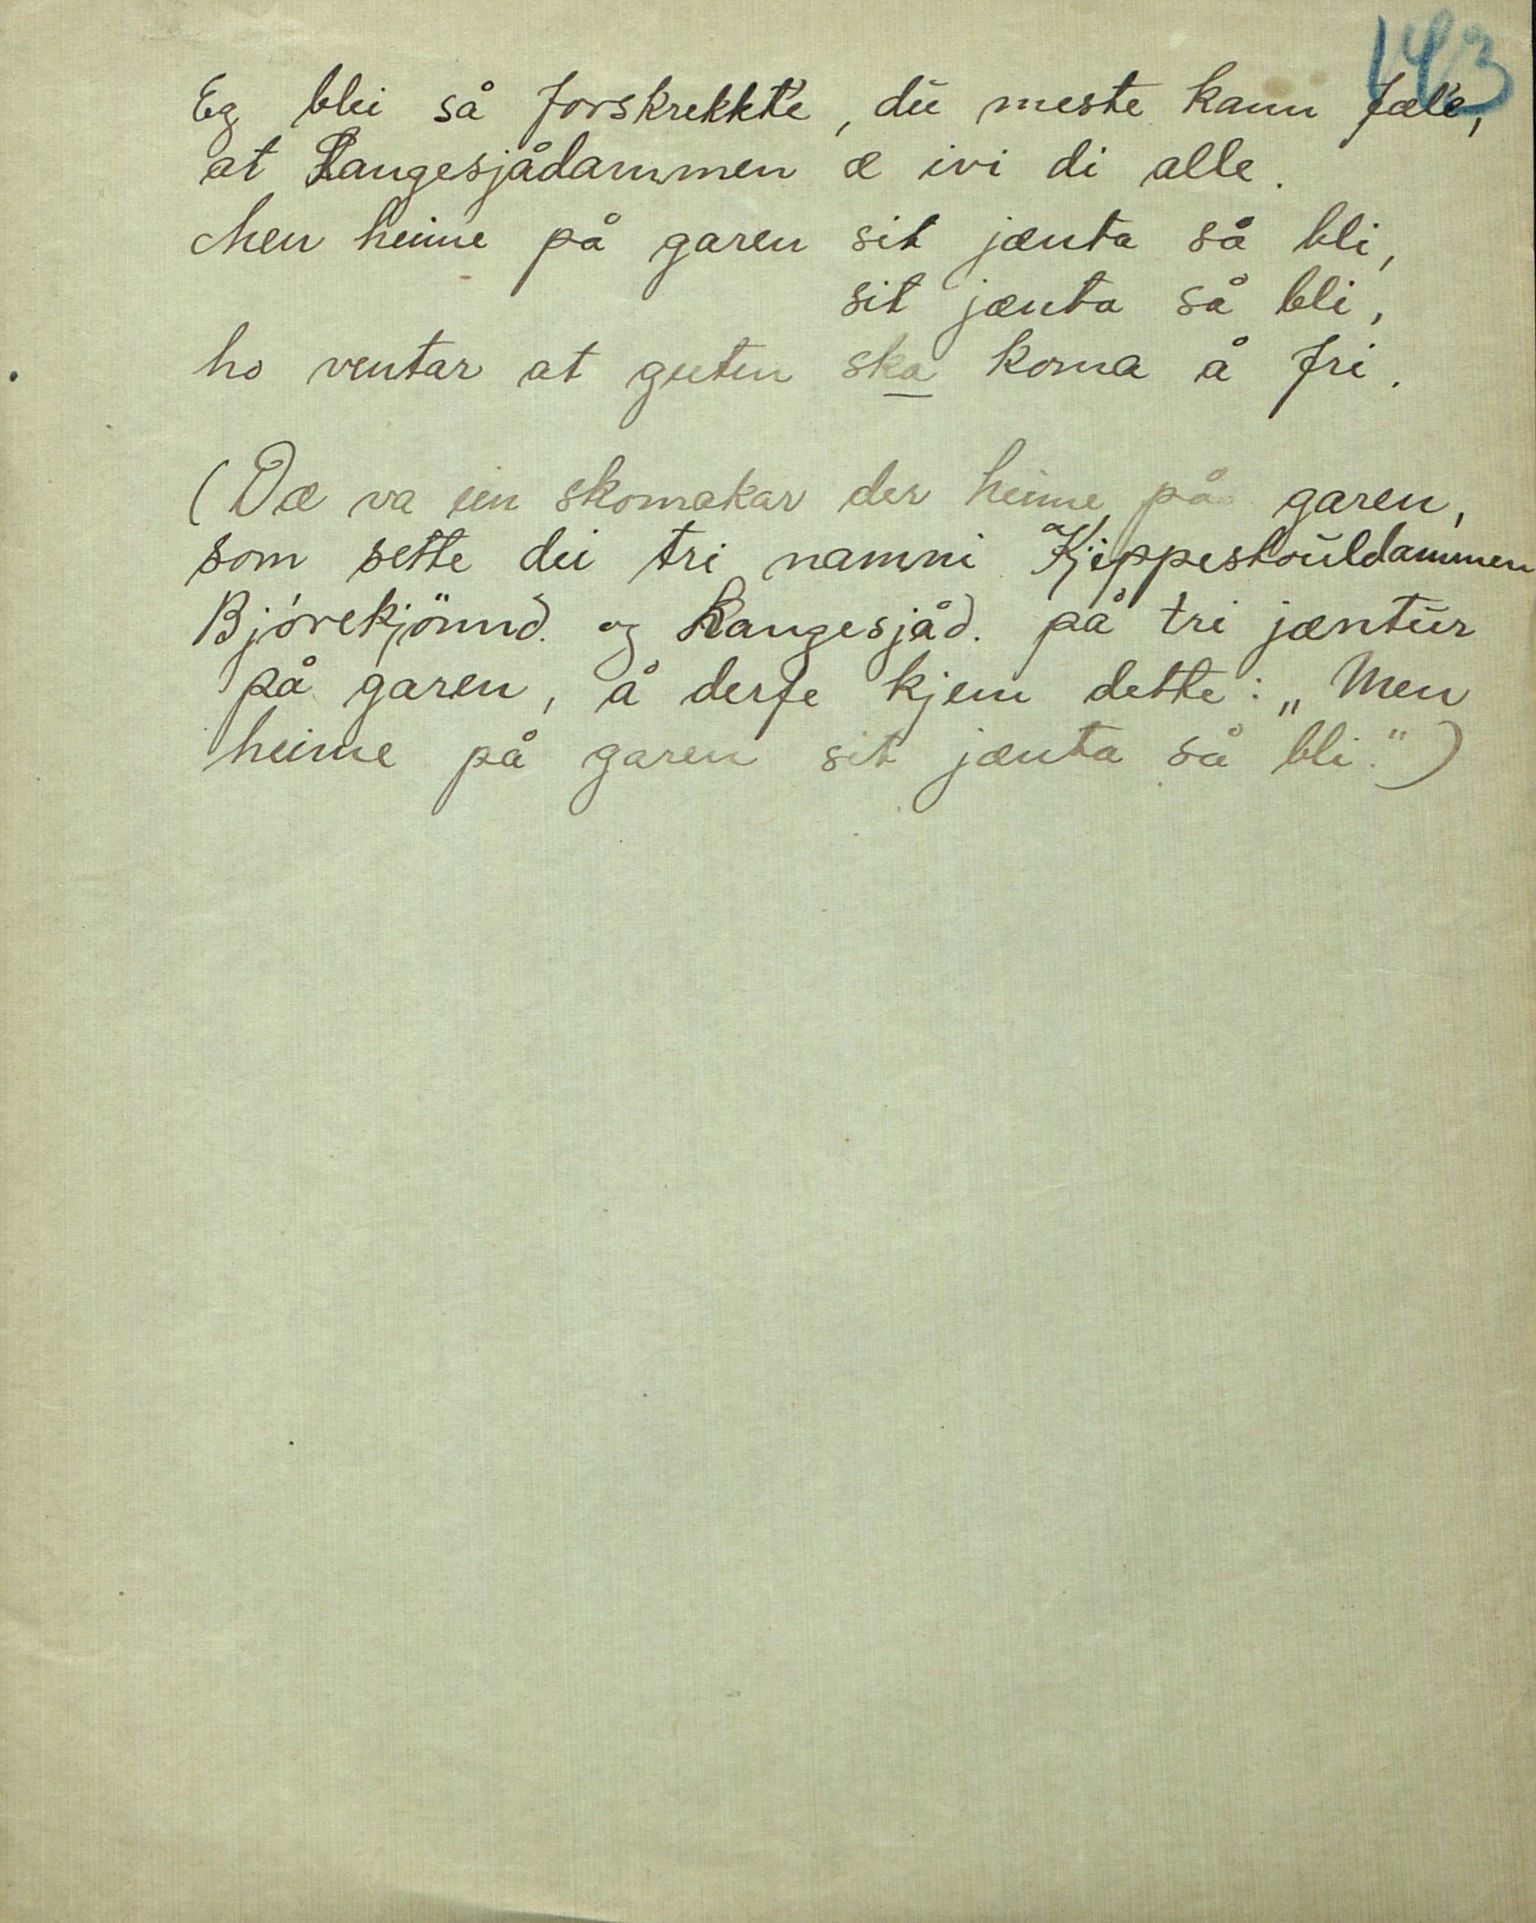 143
Eg blei så forskrekkt'e, du meste kann fæl'e,
at Langesjådammen æ ivi di alle.
Men heime på garen sit jænta så bli,
sit jænta så bli,
ho ventar at guten ska koma å fri.
(Dæ va ein skomakar der heime på garen,
som sette dei tri namni Kjippeskouldammen
Bjórekjönnd. og Langesjåd. på tri jæntur
på garen, å derfe kjem dette: „Men
heime på garen sit jænta så bli.")